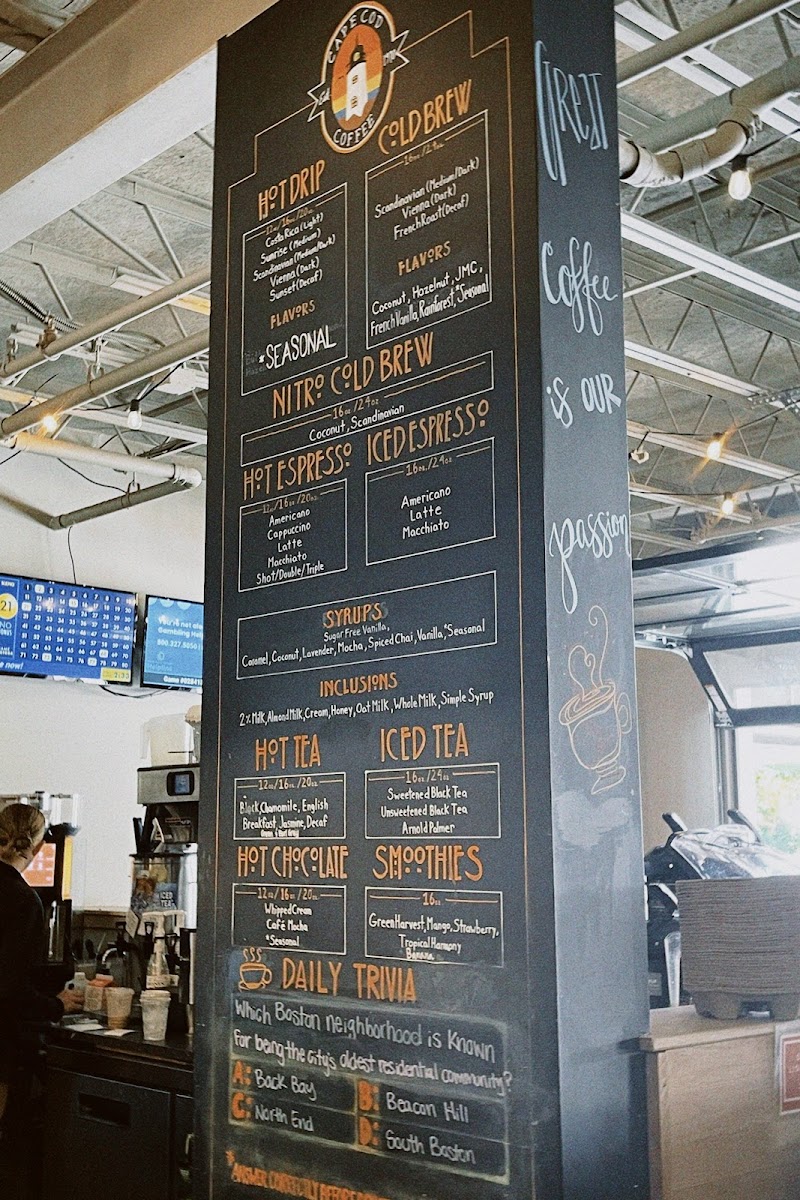 CAPE COD
Est.
COFFEE
HOT DRIP
12oz/16oz/20oz
Costa Rica (Light)
Sunrise (Medium)
Scandinavian (Medium/Dark)
Vienna (Dark)
Sunset (Decaf)
FLAVORS
*SEASONAL
COLD BREW
16oz/24oz
Scandinavian (Medium/Dark)
Vienna (Dark)
French Roast (Decaf)
FLAVORS
Coconut, Hazelnut, JMC,
French Vanilla, Rainforest, *Seasonal
NITRO COLD BREW
16oz/24oz
Coconut, Scandinavian
HOT ESPRESSO
12oz/16oz/20oz
Americano
Cappuccino
Latte
Macchiato
Shot/Double/Triple
ICED ESPRESSO
16oz/24oz
Americano
Latte
Macchiato
SYRUPS
Sugar Free Vanilla,
Caramel, Coconut, Lavender, Mocha, Spiced Chai, Vanilla, *Seasonal
INCLUSIONS
2% Milk, Almond Milk, Cream, Honey, Oat Milk, Whole Milk, Simple Syrup
HOT TEA
12oz/16oz/20oz
Black, Chamomile, English
Breakfast, Jasmine, Decaf
ICED TEA
16oz/24oz
Sweetened Black Tea
Unsweetened Black Tea
Arnold Palmer
HOT CHOCOLATE
12oz/16oz/20oz
Whipped Cream
Café Mocha
*Seasonal
SMOOTHIES
16oz
Green Harvest, Mango, Strawberry,
Tropical Harmony
Banana
DAILY TRIVIA
Which Boston neighborhood is known
for being the city's oldest residential community?
A: Back Bay
B: Beacon Hill
C: North End
D: South Boston
*ANSWER CORRECTLY BEFORE
Great
Coffee
is our
passion
21
ICED
TEA